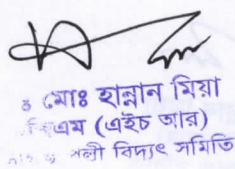 মোঃ হান্নান মিয়া
এম (এইচ আর)
পল্লী বিদ্যুৎ সমিতি